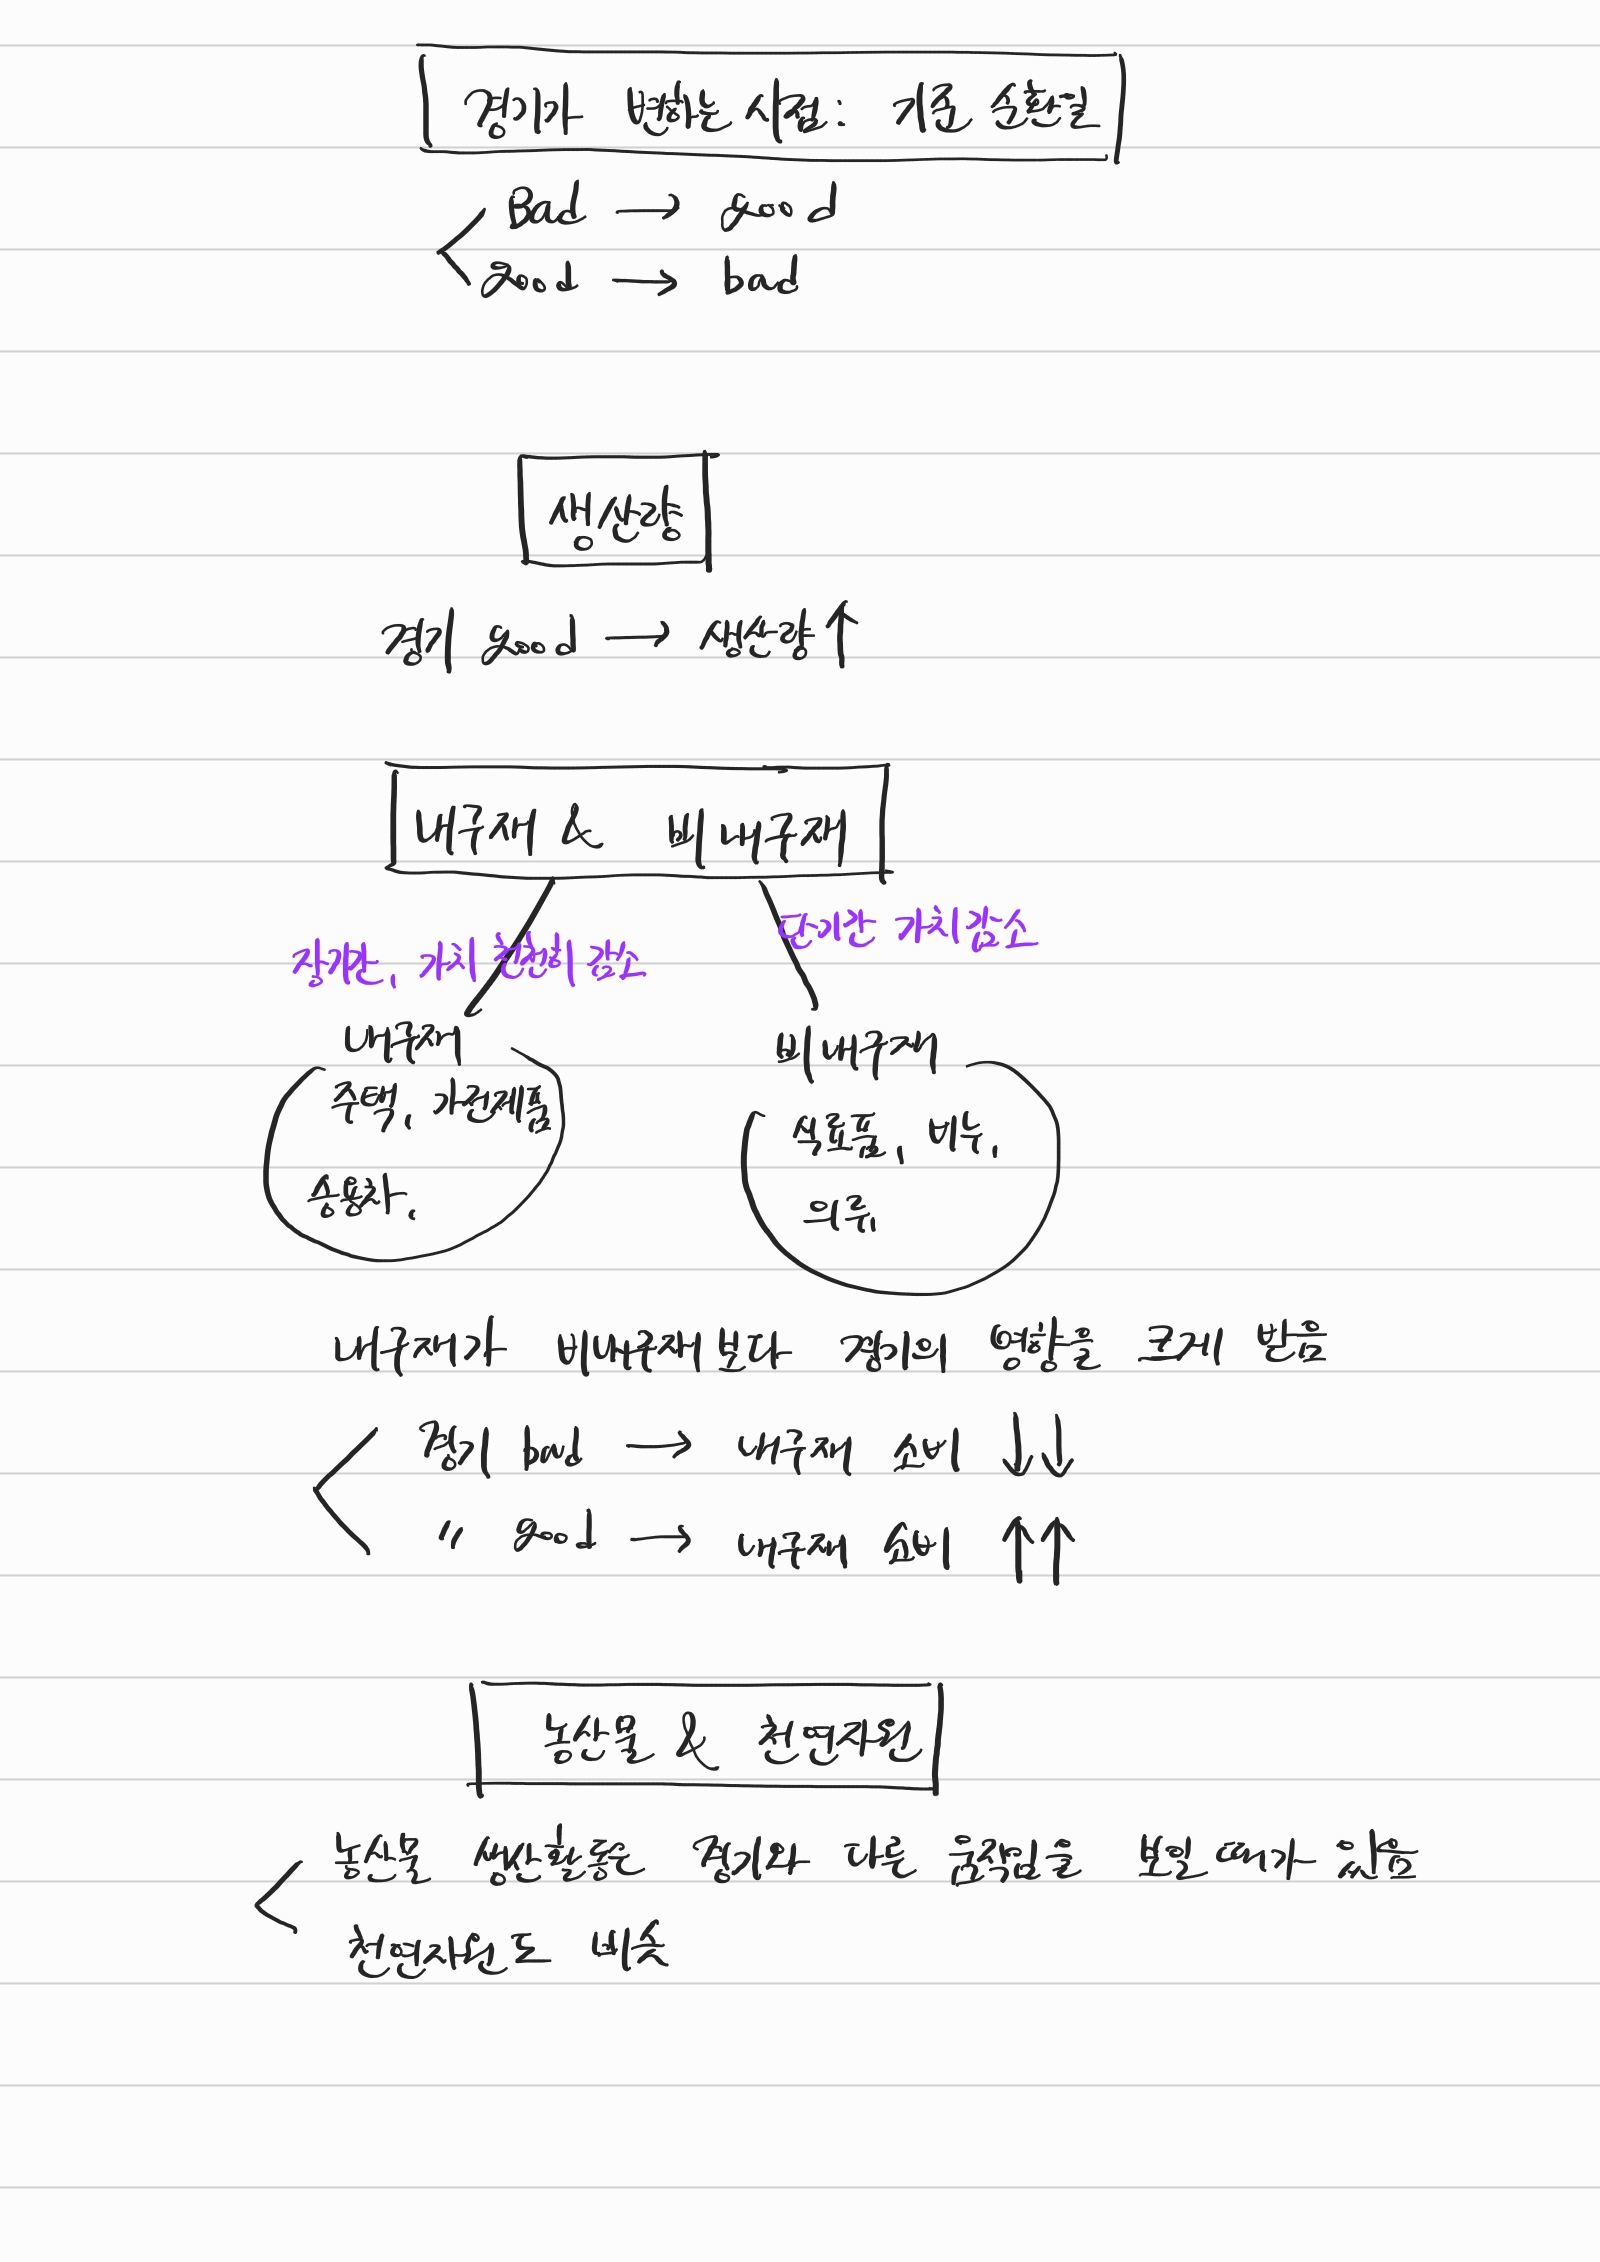 경기가 변하는 시점: 기준 순환일
Bad → good
good → bad
생산량
경기 good → 생산량 ↑
내구재 & 비내구재
장기간, 가치 천천히 감소
단기간 가치감소
내구재
주택, 가전제품
승용차,
비내구재
식료품, 비누,
의류,
내구재가 비내구재보다 경기의 영향을 크게 받음
경기 bad → 내구재 소비 ↓↓
〃 good → 내구재 소비 ↑↑
농산물 & 천연자원
농산물 생산활동은 경기와 다른 움직임을 보일 때가 있음
천연자원도 비슷